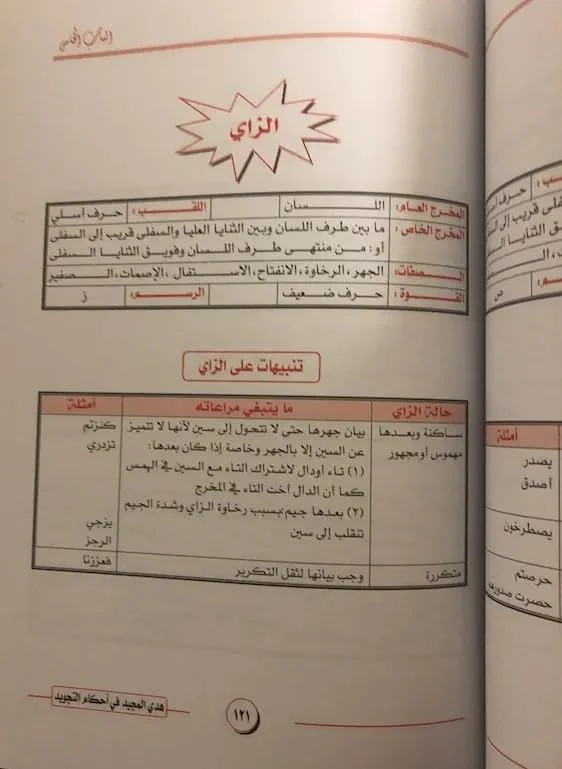 الباب الخامس
الزاي
المخرج العام: اللسان اللقب: حرف أسلي
المخرج الخاص: ما بين طرف اللسان وبين الثنايا العليا والسفلى قريب إلى السفلى
أو: من منتهى طرف اللسان وفويق الثنايا السفلى
الصفات: الجهر، الرخاوة، الانفتاح، الاستفال، الإصمات، الصفير
القوة: حرف ضعيف الرسم: ز
تنبيهات على الزاي
حالة الزاي ما ينبغي مراعاته أمثلة
ساكنة وبعدها بيان جهرها حتى لا تتحول إلى سين لأنها لا تتميز كنزتم
مهموس أو مجهور عن السين إلا بالجهر وخاصة إذا كان بعدها: تزدري
(١) تاء أودال لاشتراك التاء مع السين في الهمس
كما أن الدال أخت التاء في المخرج
(٢) بعدها جيم؛ بسبب رخاوة الزاي وشدة الجيم يزجي
تنقلب إلى سين الرجز
متكررة وجب بيانها لثقل التكرير فعززنا
١٢١
هدي المجيد في أحكام التجويد
حرف أسلي
ص
أمثلة
يصدر
أصدق
يصطرخون
حرصتم
حصرت صدورهم